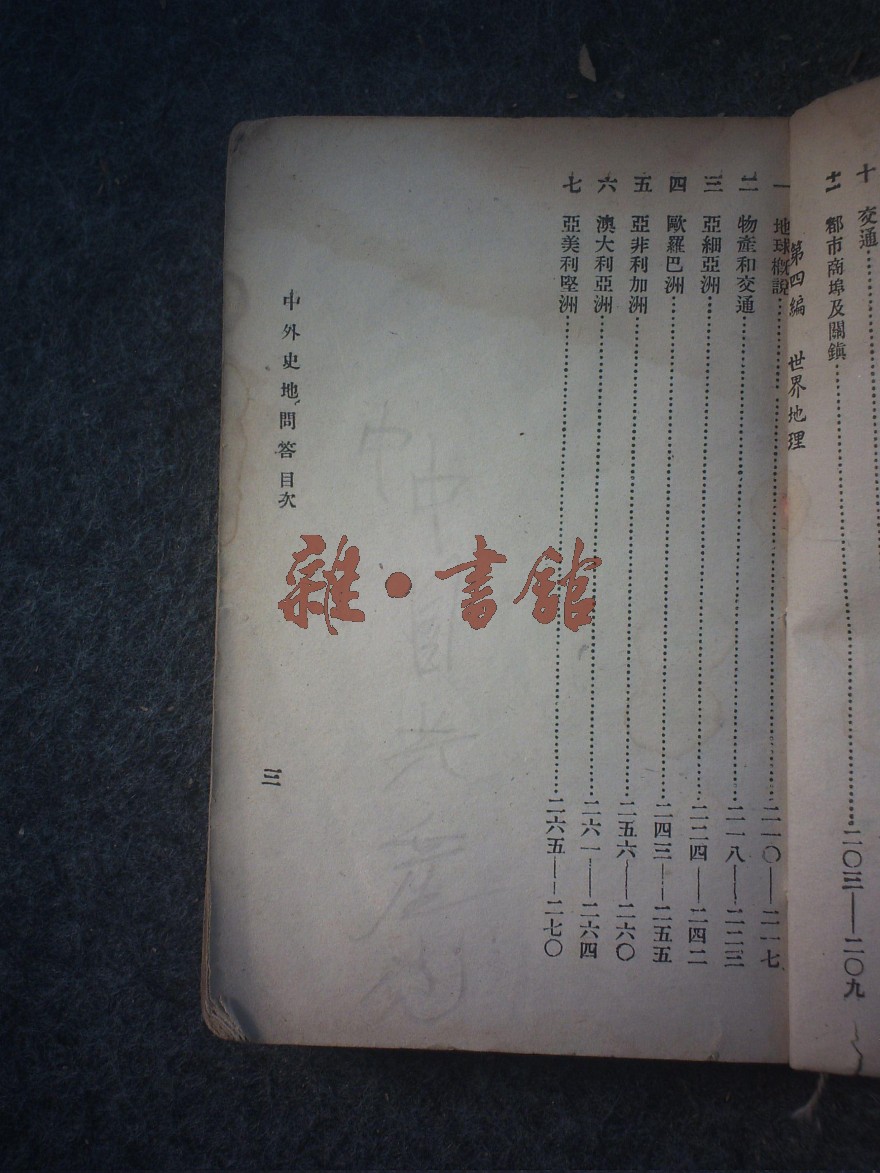 十 交通
十一 都市商埠及關鎮……二〇三——二〇九
第四編 世界地理
一 地球概說……二一〇——二一七
二 物產和交通……二一八——二二三
三 亞細亞洲……二二四——二四二
四 歐羅巴洲……二四三——二五五
五 亞非利加洲……二五六——二六〇
六 澳大利亞洲……二六一——二六四
七 亞美利堅洲……二六五——二七〇
中外史地問答 目次
三
雜·書館